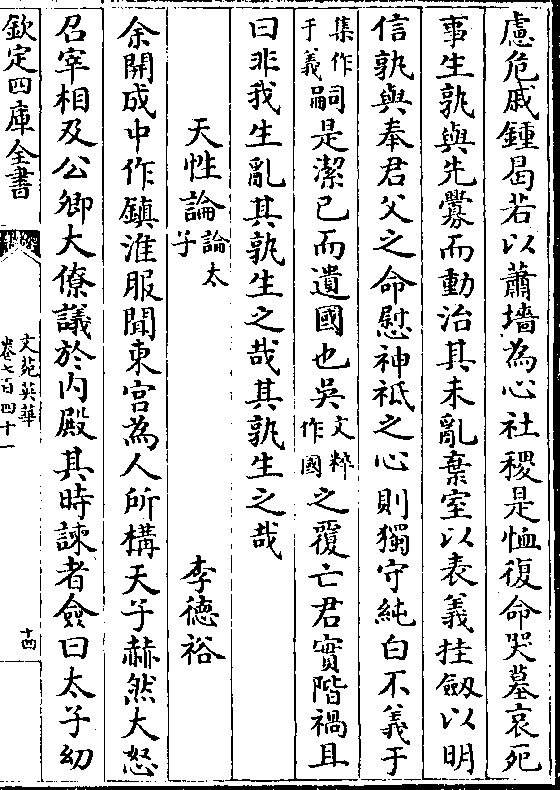 慮危戚鍾曷若以蕭墻為心社稷是恤復命哭墓哀死
事生孰與先釁而動治其未亂棄室以表義挂劔以明
信孰與奉君父之命慰神祇之心則獨守純白不義于
集作于義嗣是潔已而遺國也吳文粹作國之覆亡君實階禍且
曰非我生亂其孰生之哉其孰生之哉
天性論論太子 李德裕
余開成中作鎮淮服聞東宮為人所構天子赫然大怒
召宰相及公卿大僚議於内殿其時諫者僉曰太子幼
欽定四庫全書
文苑英華
卷七百四十一
十四